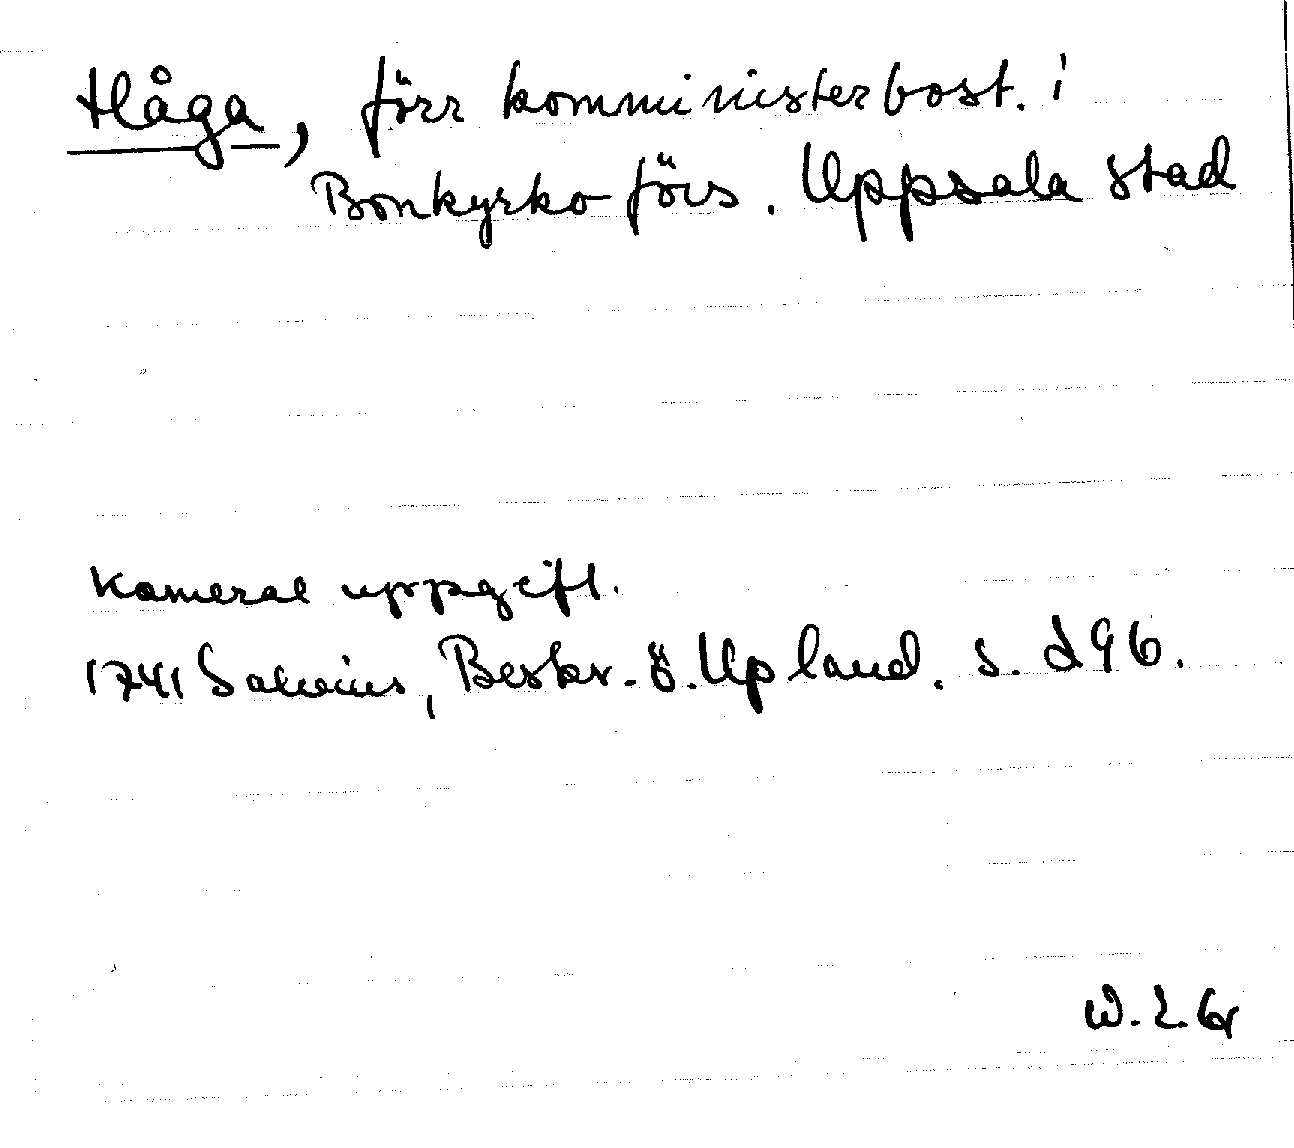 Håga, förr kommunisterbost. i
Bonkyrko förs. Uppsala stad
Kameral uppgift.
1741 Salvius, Beskr. ö. Upland. s. 296.
W.L.Gr